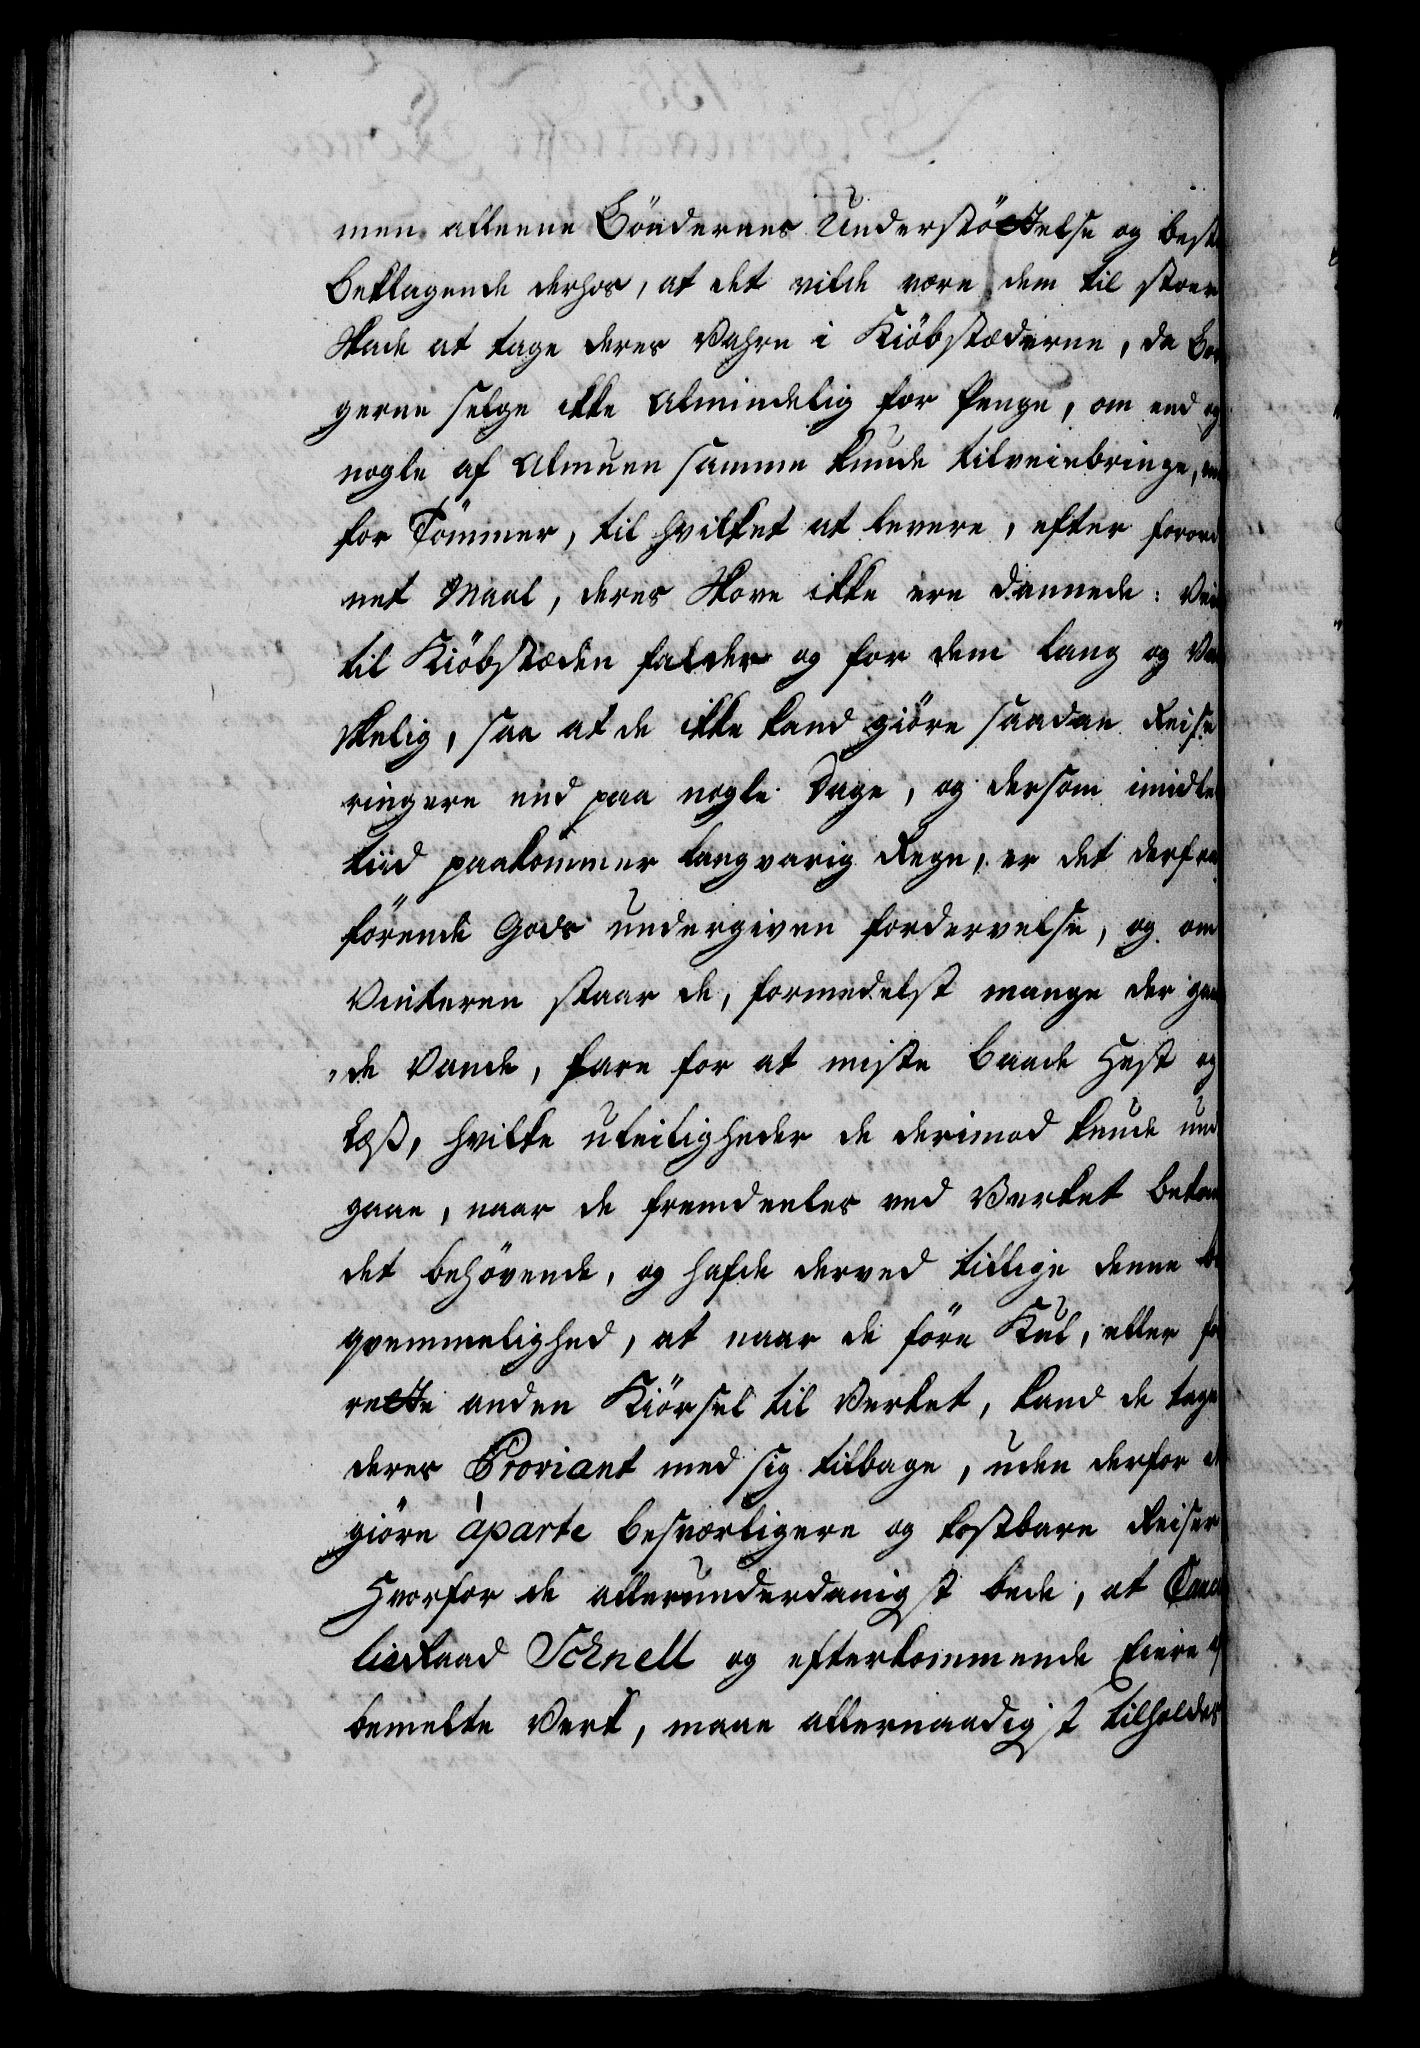 men alleene Böndernes Understöttelse og beste
beklagende derhos, at det vilde være dem til stoer
Skade at tage deres Vahre i Kiöbstæderne, da Bor
gerne selge ikke Almindelig for Penge, om end og
nogle af Almuen samme kunde tilveiebringe, men
for Tömmer, til hvilket at levere, efter forord
net Maal, deres Skove ikke ere dannede: Veien
til Kiöbstæden falder og for dem lang og Van
skelig, saa at de ikke kand giöre saadan Reise
ringere end paa nogle Dage, og dersom imidler
tiid paakommer langvarig Regn, er det derfra
förende Gods undergiven fordervelse, og om
Vinteren staar de, formedelst mange der gaaen
de Vande, fare for at miste baade Hest og
Læss, hvilke uleiligheder de derimod kunde und
gaae, naar de fremdeeles ved Verket bekom
det behövende, og hafde derved tillige denne be
qvemmelighed, at naar de före Kul, eller for
rette anden Kiörsel til Verket, kand de tage
deres Proviant med sig tilbage, uden derfor at
giöre àparte besværligere og kostbare Reiser
Hvorfor de allerunderdanigst bede, at Cancel
lieRaad Schnell og efterkommende Eiere af
bemelte Verk, maae allernaadigst tilholdes